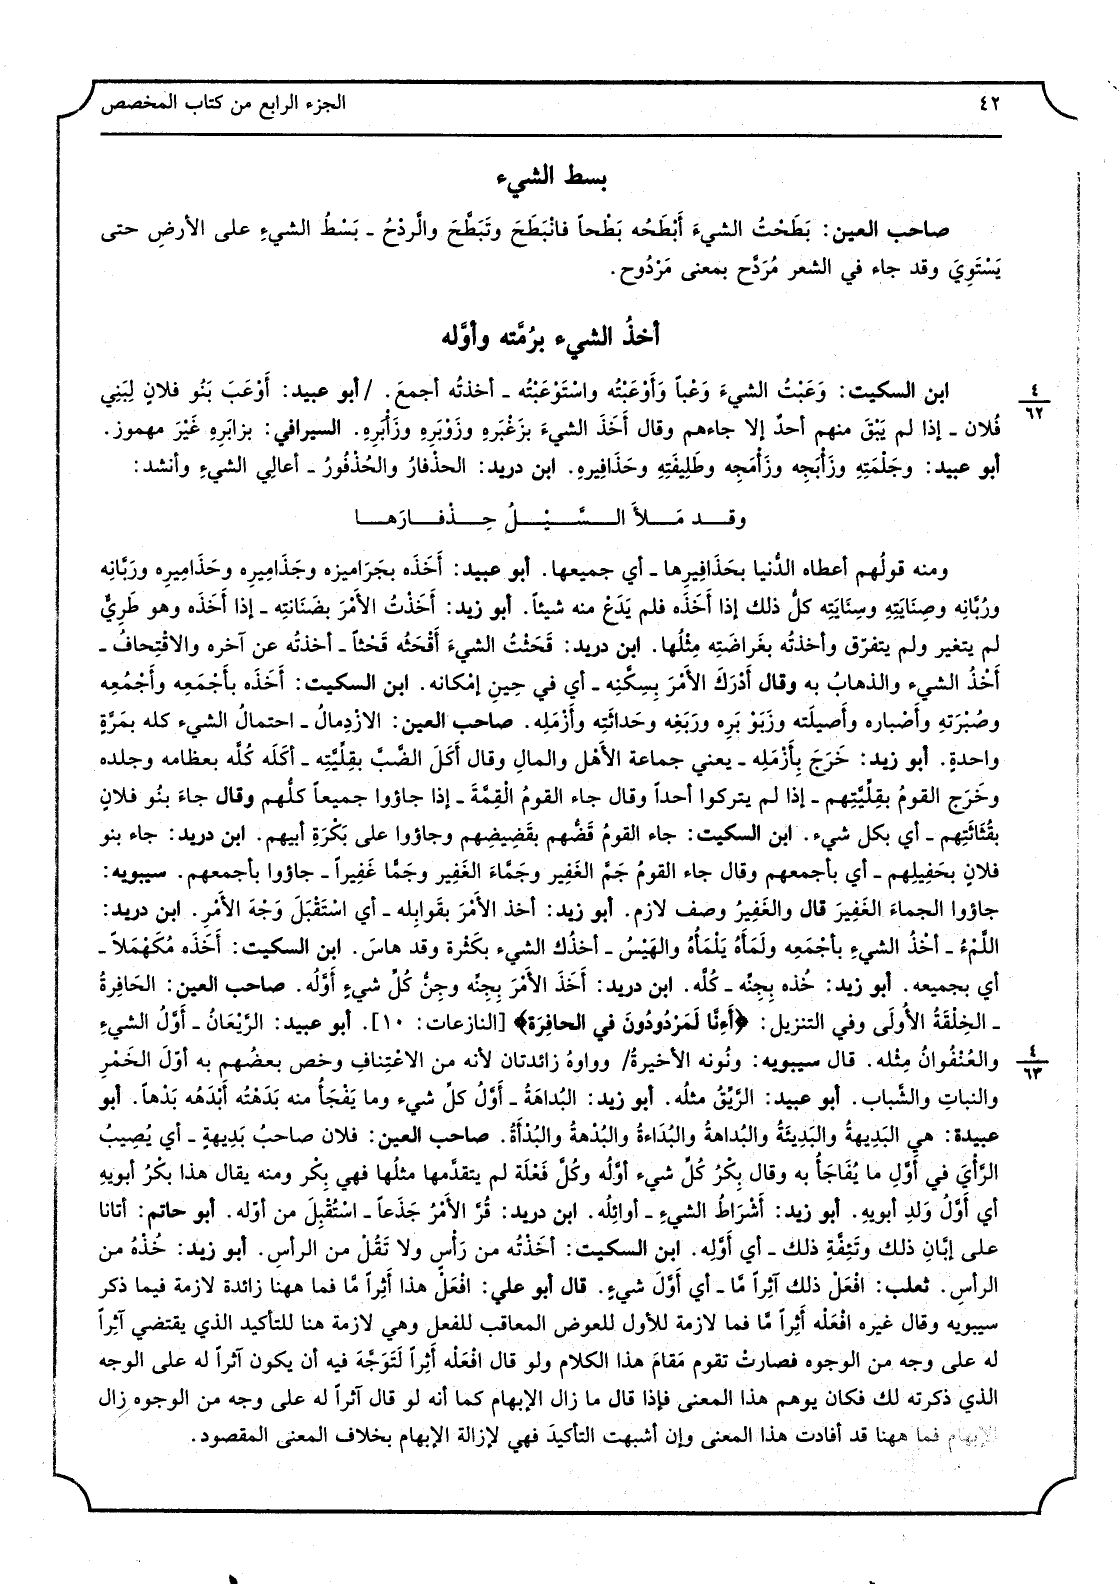 ٤٢
الجزء الرابع من كتاب المخصص
بسط الشيء
صاحب العين: بَطَحْتُ الشيءَ أَبْطَحُه بَطْحاً فانْبَطَحَ وتَبَطَّحَ والرَّدْحُ ـ بَسْطُ الشيءِ على الأرضِ حتى
يَسْتَوِيَ وقد جاء في الشعر مُرَدَّح بمعنى مَرْدُوح.
أخذُ الشيء برُمَّته وأوَّله
ابن السكيت: وَعَبْتُ الشيءَ وَعْباً وَأَوْعَبْتُه واسْتَوْعَبْتُه ـ أخذتُه أجمعَ. / أبو عبيد: أَوْعَبَ بَنُو فلانٍ لِبَنِي
٤
٦٢
فُلان ـ إذا لم يَبْقَ منهم أحدٌ إلا جاءهم وقال أَخَذَ الشيءَ بزَغْبَرِهِ وزَوْبَرِهِ وزَأْبَرِه. السيرافي: بزابَرِهِ غَيْرَ مهموز.
أبو عبيد: وجَلْمَتِهِ وزَأْبَجِه وزَأْمَجِه وطَلِيفَتِهِ وحَذَافيرِه. ابن دريد: الحذفارُ والحُذْفُورُ ـ أعالِي الشيءِ وأنشد:
وقد مَلأَ السَّيْلُ حِذْفارَها
ومنه قولُهم أعطاه الدُّنيا بحَذَافِيرِها ـ أي جميعها. أبو عبيد: أَخَذَه بجَرَاميزه وجَذَاميرِه وحَذَاميرِه ورَبَّانِه
ورُبَّانِه وصِنَايَتِهِ وسِنَايَتِه كلُّ ذلك إذا أَخَذَه فلم يَدَعْ منه شيئاً. أبو زيد: أَخَذْتُ الأمْرَ بضَنَانتِه ـ إذا أَخَذَه وهو طَرِيٌّ
لم يتغير ولم يتفرّق وأخذتُه بغَراضَتِه مِثْلُها. ابن دريد: قَحَثْتُ الشيءَ أَقْحَثُه قَحْثاً ـ أخذتُه عن آخره والاقْتِحافُ ـ
أَخْذُ الشيء والذهابُ به وقال أَدْرَكَ الأمْرَ بِسِكَّنِه ـ أي في حِينِ إمْكانه. ابن السكيت: أَخَذَه بأَجْمَعِه وأَجْمُعِه
وصُبْرَتِهِ وأَصْباره وأَصيلَته وزَبَوْ بَرِه ورَبَغِه وحَداثَتِه وأَزْمَلِه. صاحب العين: الازْدِمالُ ـ احتمالُ الشيء كله بمَرَّةٍ
واحدةٍ. أبو زيد: خَرَجَ بِأَزْمَلِه ـ يعني جماعة الأهْل والمالِ وقال أَكَلَ الضَّبَّ بقِلِّيَّتِه ـ أكَلَه كُلَّه بعظامه وجلده
وخَرَج القومُ بقِلِّيَّتِهم ـ إذا لم يتركوا أحداً وقال جاء القومُ الْقِمَّةَ ـ إذا جاؤوا جميعاً كلُّهم وقال جاءَ بنُو فلانٍ
بقُثَاثَتِهم ـ أي بكل شيء. ابن السكيت: جاء القومُ قَضُّهم بقَضِيضِهم وجاؤوا على بَكْرَةِ أبيهم. ابن دريد: جاء بنو
فلانٍ بحَفِيلِهم ـ أي بأجمعهم وقال جاء القومُ جَمَّ الغَفِير وجَمَّاءَ الغَفِير وجَمًّا غَفِيراً ـ جاؤوا بأجمعهم. سيبويه:
جاؤوا الجماءَ الغَفِيرَ قال والغَفِيرُ وصف لازم. أبو زيد: أخذ الأمْرَ بقَوابِله ـ أي اسْتَقْبَلَ وَجْهَ الأمْرِ. ابن دريد:
اللَّمْءُ ـ أخْذُ الشيءِ بأجْمَعِه ولَمَأَهُ يَلْمَأُهُ والهَيْسُ ـ أخذُك الشيء بكَثْرة وقد هاسَ. ابن السكيت: أَخَذَه مُكَهْمَلاً ـ
أي بجميعه. أبو زيد: خُذه بِجِنِّه ـ كُلّه. ابن دريد: أَخَذَ الأمْرَ بِجِنِّه وجِنُّ كُلِّ شيءٍ أوَّلُه. صاحب العين: الحَافِرةُ
ـ الخِلْقَةُ الأُولَى وفي التنزيل: ﴿أَءِنَّا لَمَرْدُودُونَ في الحافِرَة﴾ [النازعات: ١٠]. أبو عبيد: الرَّيْعَانُ ـ أوَّلُ الشيءِ
والعُنْفُوانُ مِثْله. قال سيبويه: ونُونه الأخيرةُ/ وواوهُ زائدتان لأنه من الاعْتِناف وخص بعضُهم به أوّلَ الخَمْرِ
٤
٦٣
والنباتِ والشَّباب. أبو عبيد: الرَّيِّقُ مثلُه. أبو زيد: البُداهَةُ ـ أوَّلُ كلِّ شيء وما يَفْجَأُ منه بَدَهْتُه أَبْدَهُه بَدْهاً. أبو
عبيدة: هي البَدِيهةُ والبَدِيئَةُ والبُداهةُ والبُدَاءةُ والبُدْهةُ والبُدْأَةُ. صاحب العين: فلان صاحبُ بَدِيهةٍ ـ أي يُصِيبُ
الرَّأْيَ في أَوَّلِ ما يُفَاجَأُ به وقال بِكْرُ كُلِّ شيء أوَّلُه وكُلُّ فَعْلَة لم يتقدَّمها مثلُها فهي بِكْر ومنه يقال هذا بكْرُ أبويهِ
أي أَوَّلُ وَلَدِ أبويهِ. أبو زيد: أَشْرَاطُ الشيءِ ـ أوائلُه. ابن دريد: قُرَّ الأمْرُ جَذَعاً ـ اسْتُقْبِلَ من أوّله. أبو حاتم: أتانا
على إبَّانِ ذلك وتَئِفَّةِ ذلك ـ أي أَوَّلِه. ابن السكيت: أخذْتُه من رَأْسٍ ولا تَقُلْ من الرأس. أبو زيد: خُذْهُ من
الرأسِ. ثعلب: افْعَلْ ذلك آثِراً مَّا ـ أي أَوَّلَ شيءٍ. قال أبو علي: افْعَلْ هذا أَثِراً مَّا فما ههنا زائدة لازمة فيما ذكر
سيبويه وقال غيره افْعَلْه أَثِراً مَّا فما لازمة للأول للعوض المعاقب للفعل وهي لازمة هنا للتأكيد الذي يقتضي آثِراً
له على وجه من الوجوه فصارتْ تقوم مَقامَ هذا الكلام ولو قال افْعَلْه أَثِراً لَتَوَجَّهَ فيه أن يكون آثراً له على الوجه
الذي ذكرته لك فكان يوهم هذا المعنى فإذا قال ما زال الإبهام كما أنه لو قال آثراً له على وجه من الوجوه زال
الإبهام فما ههنا قد أفادت هذا المعنى وإن أشبهت التأكيدَ فهي لإزالة الإبهام بخلاف المعنى المقصود.